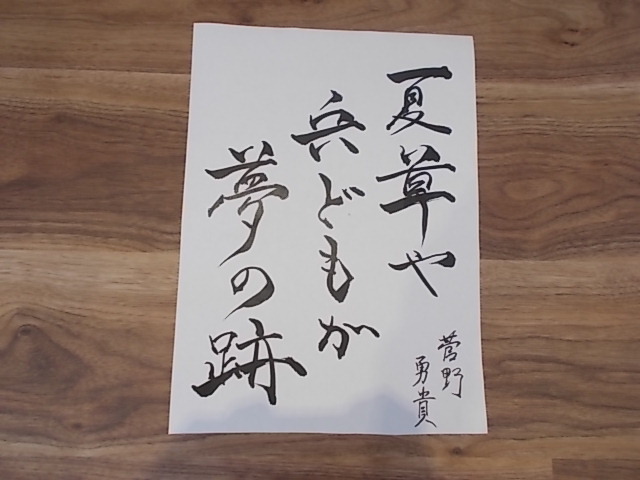 夏草や
兵どもが
夢の跡
菅野
勇貴